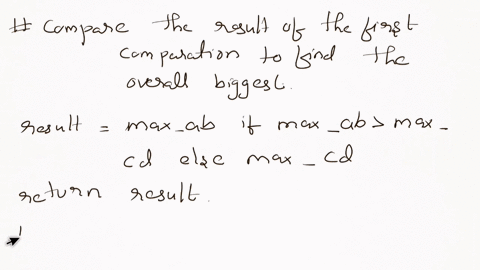 # Compare the result of the first
comparation to find the
overall biggest.
result = max_ab if max_ab > max_
cd else max_cd
return result.